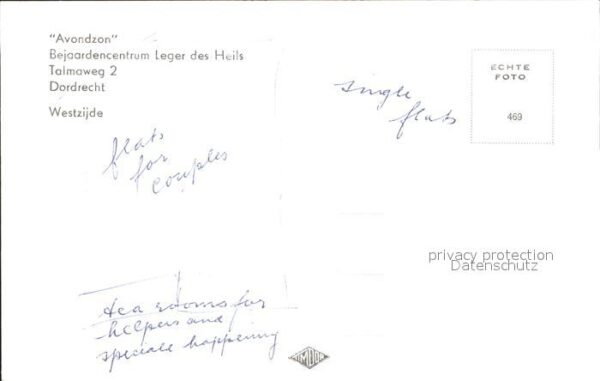 "Avondzon"
Bejaardencentrum Leger des Heils
Talmaweg 2
Dordrecht
Westzijde
flats
for
couples
single
flats
ECHTE
FOTO
469
privacy protection
Datenschutz
tea rooms for
helpers and
speciale happening